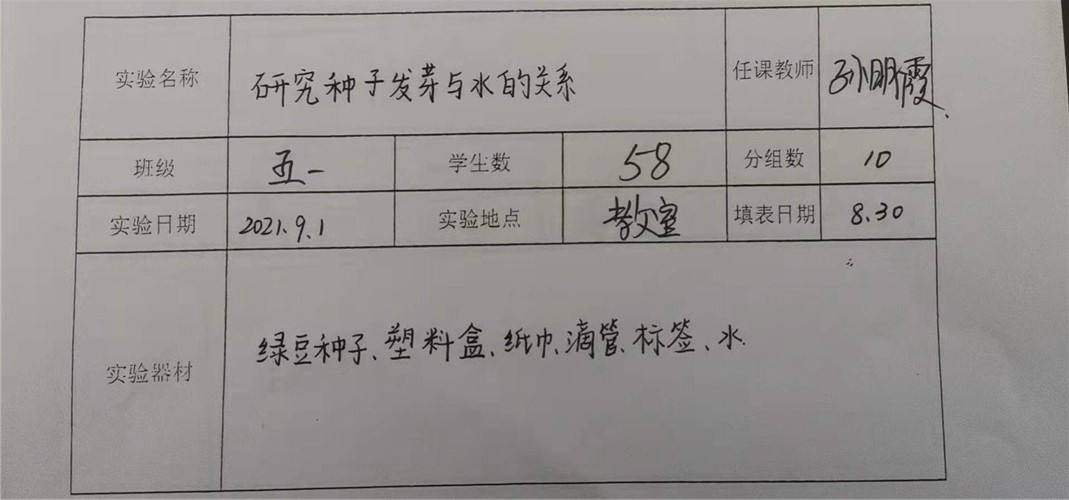 实验名称 研究种子发芽与水的关系 任课教师 孙明霞
班级 五一 学生数 58 分组数 10
实验日期 2021.9.1 实验地点 教室 填表日期 8.30
实验器材 绿豆种子、塑料盒、纸巾、滴管、标签、水.